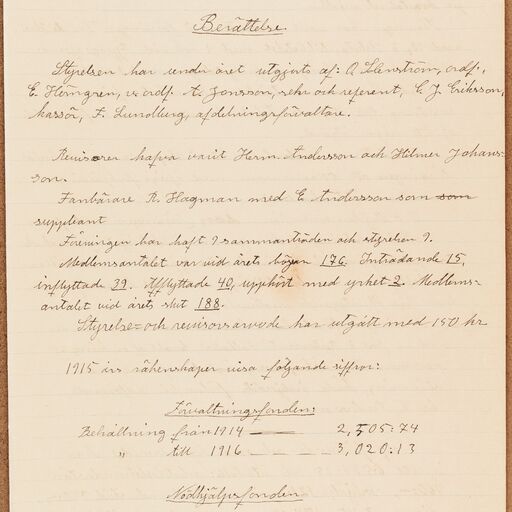 Berättelse.
Styrelsen har under året utgjorts af: O. Stenström, ordf.,
E. Holmgren, v. ordf. A. Jonsson, sekr och referent, C. J. Eriksson,
kassör, F. Lundberg, afdelningsförvaltare.
Revisorer hafva varit Herm. Andersson och Hilmer Johans-
son.
Fanbärare R. Hagman med E Andersson som som
suppleant
Föreningen har haft 9 sammanträden och styrelsen 9.
Medlemsantalet var vid årets början 176. Inträdande 15,
inflyttade 39. Afflyttade 40, upphört med yrket 2. Medlems-
antalet vid årets slut 188.
Styrelse= och revisorsarvode har utgått med 150 kr
1915 års räkenskaper visa följande siffror:
Förvaltningsfonden:
Behållning från 1914 — 2,505:74
" till 1916 — — — 3,020:13
Nödhjälpsfonden